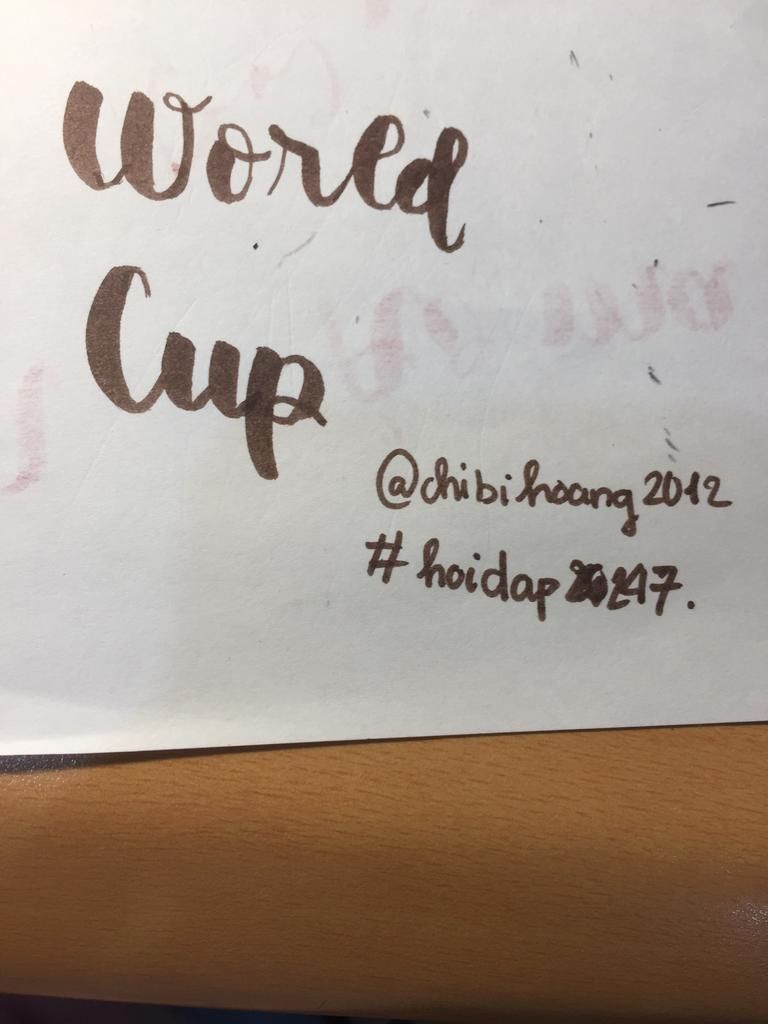 World
Cup
@chibihoang2012
#hoidap247.